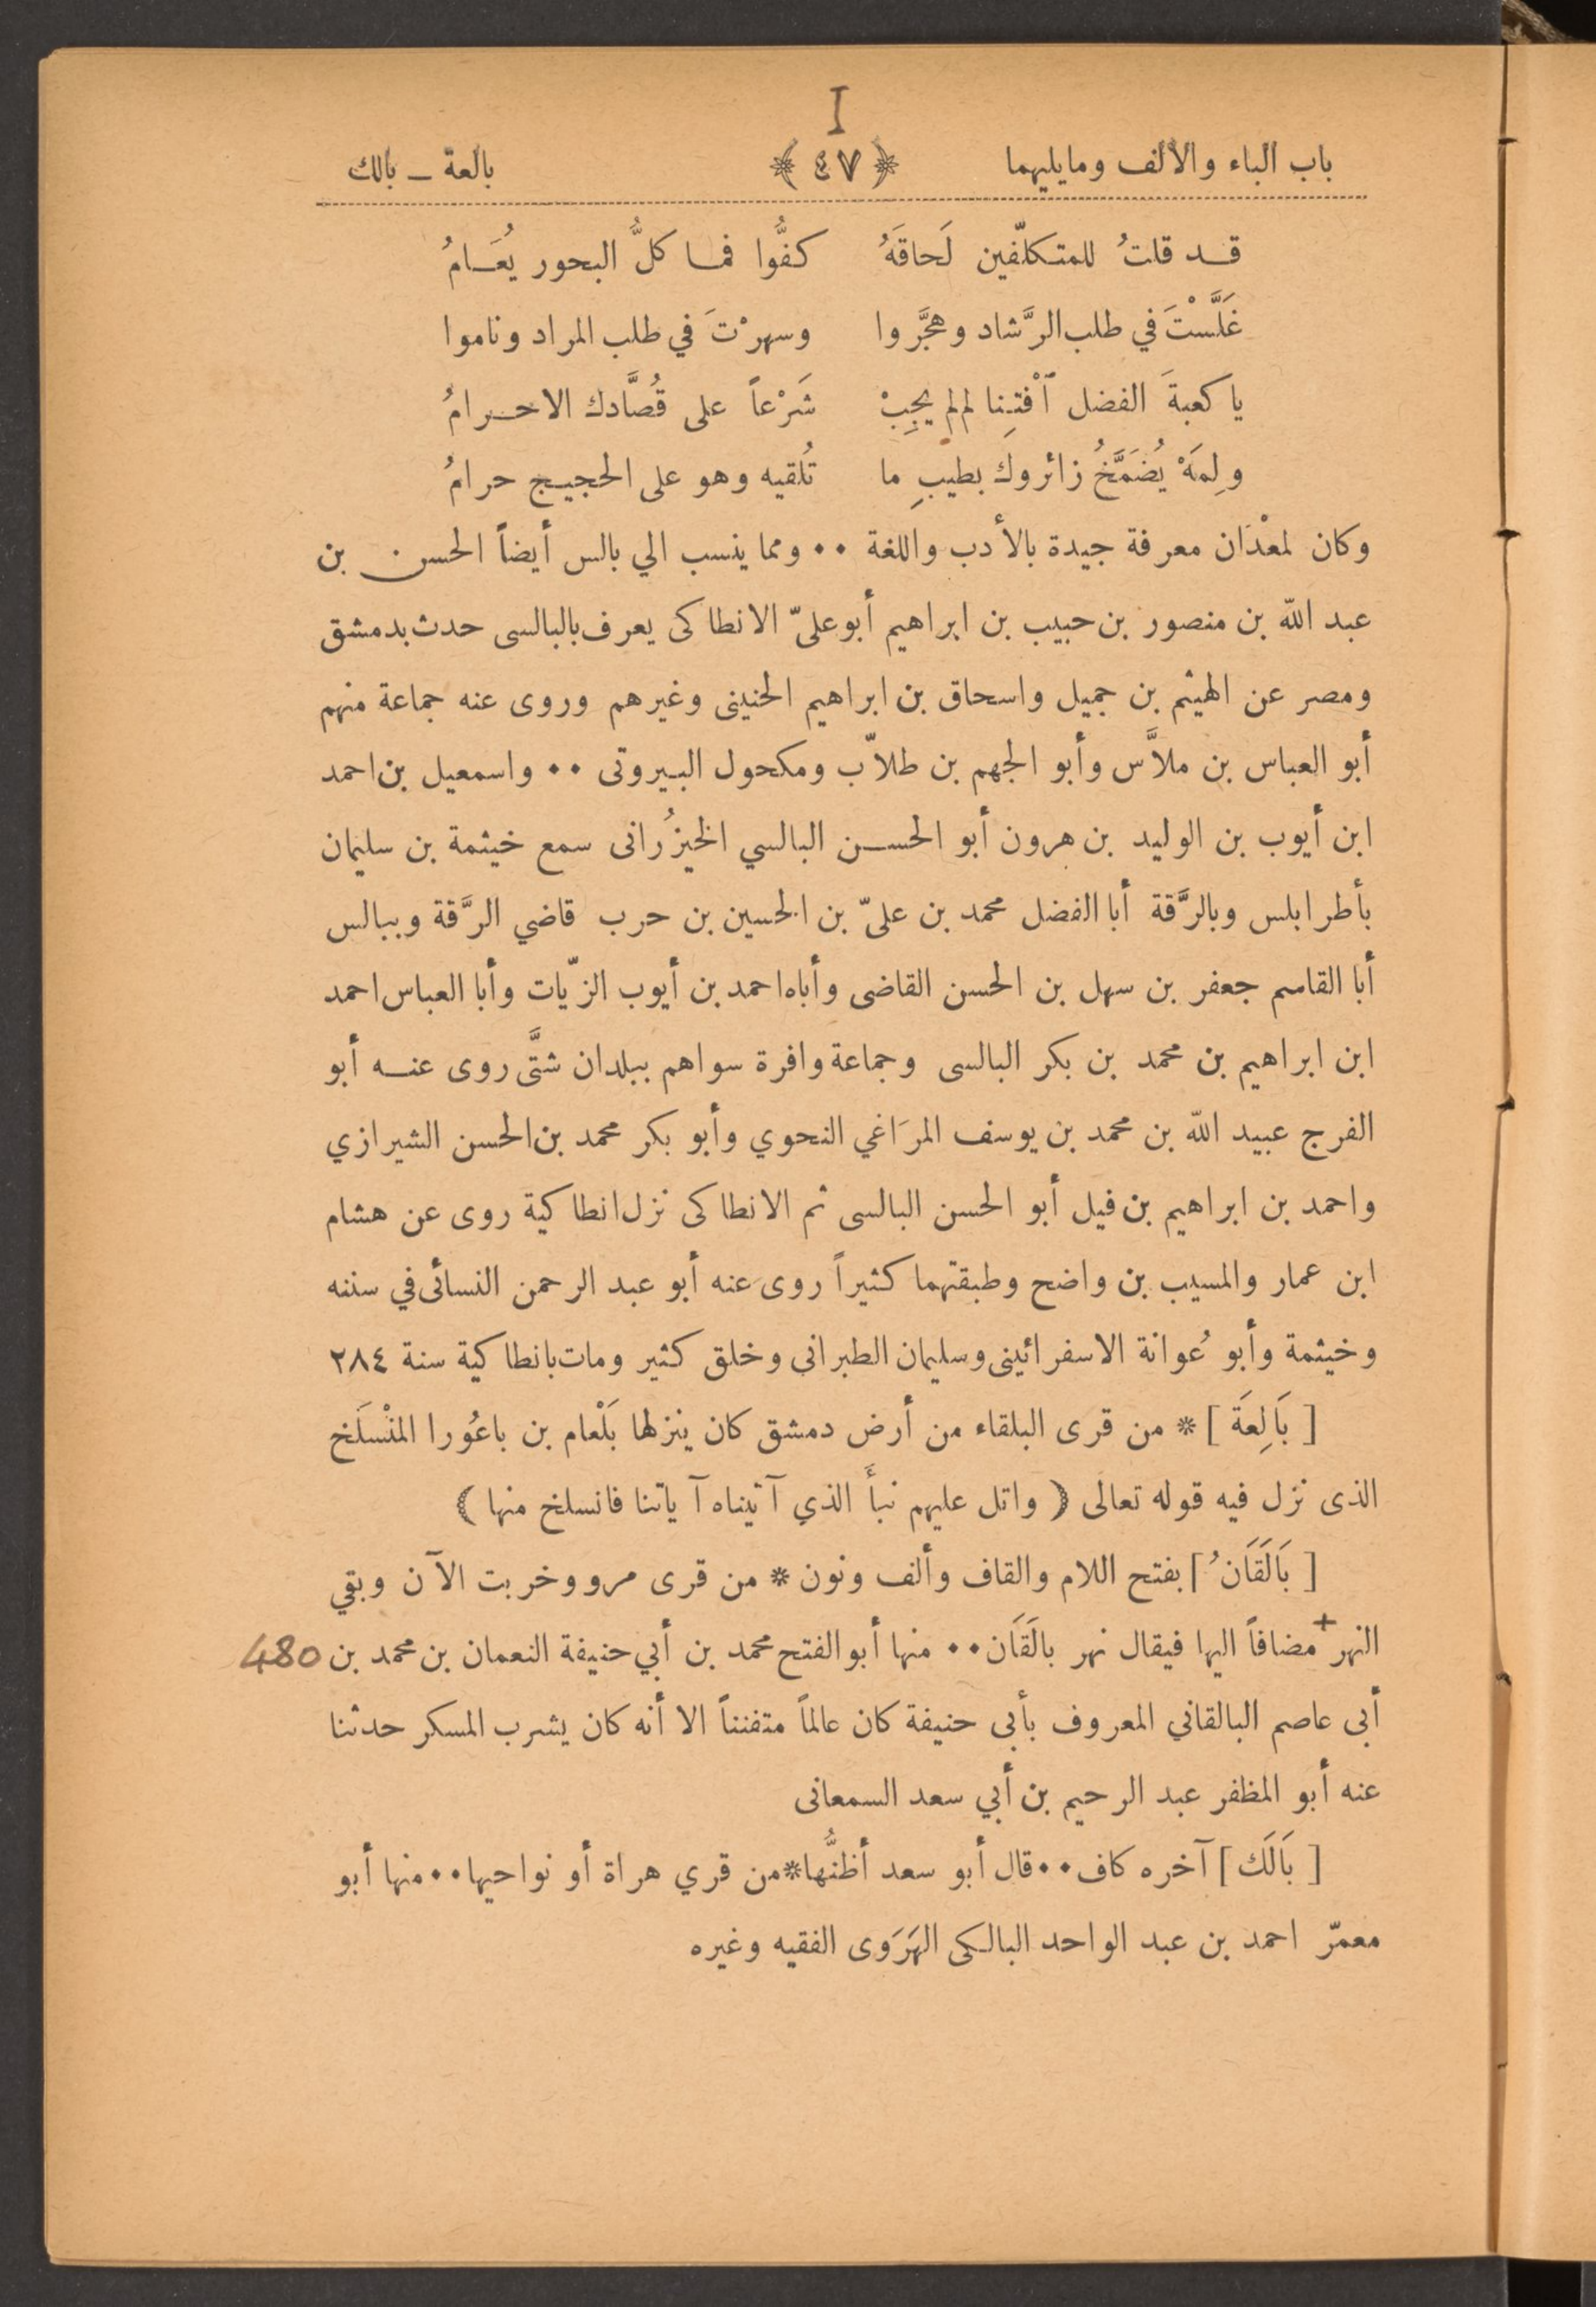 I
باب الباء والألف ومايليهما ﴿٤٧﴾ بالعة ــ بالك
قـد قلتُ للمتكلّفين لَحاقَهُ كفُّوا فمـا كلُّ البحور يُعَـامُ
غَلَّسْتَ في طلب الرَّشاد وهجَّروا وسهرْتَ في طلب المراد وناموا
يا كعبةَ الفضل آفْتِنا لم لم يجِبْ شَرْعاً على قُصَّادك الاحـرامُ
ولِمَهْ يُضَمَّخُ زائروكَ بطيبِ ما تُلقيه وهو على الحجيـج حرامُ
وكان لمعْدَان معرفة جيدة بالأدب واللغة •• ومما ينسب الي بالس أيضاً الحسن بن
عبد الله بن منصور بن حبيب بن ابراهيم أبو علىّ الانطاكى يعرف بالبالسى حدث بدمشق
ومصر عن الهيثم بن جميل واسحاق بن ابراهيم الحنينى وغيرهم وروى عنه جماعة منهم
أبو العباس بن ملاَّس وأبو الجهم بن طلاّب ومكحول البيروتى •• واسمعيل بن احمد
ابن أيوب بن الوليد بن هرون أبو الحسـن البالسي الخيزُرانى سمع خيثمة بن سليمان
بأطرابلس وبالرَّقة أبا الفضل محمد بن علىّ بن الحسين بن حرب قاضي الرَّقة وببالس
أبا القاسم جعفر بن سهل بن الحسن القاضى وأباه احمد بن أيوب الزّيات وأبا العباس احمد
ابن ابراهيم بن محمد بن بكر البالسى وجماعة وافرة سواهم ببلدان شتَّى روى عنـه أبو
الفرج عبيد الله بن محمد بن يوسف المرَاغي النحوي وأبو بكر محمد بن الحسن الشيرازي
واحمد بن ابراهيم بن فيل أبو الحسن البالسى ثم الانطاكى نزل انطاكية روى عن هشام
ابن عمار والمسيب بن واضح وطبقتهما كثيراً روى عنه أبو عبد الرحمن النسائى في سننه
وخيثمة وأبو عُوانة الاسفرائينى وسليمان الطبرانى وخلق كثير ومات بانطاكية سنة ٢٨٤
[ بَالِعَة ] * من قرى البلقاء من أرض دمشق كان ينزلها بَلْعام بن باعُورا المنْسَلَخ
الذى نزل فيه قوله تعالى ﴿ واتل عليهم نبأَ الذي آتيناه آياتنا فانسلخ منها ﴾
[ بَالَقَانُ ] بفتح اللام والقاف وألف ونون * من قرى مرو وخربت الآن وبقي
النهر + مضافاً اليها فيقال نهر بالَقَان •• منها أبو الفتح محمد بن أبي حنيفة النعمان بن محمد بن 480
أبى عاصم البالقاني المعروف بأبى حنيفة كان عالماً متفنناً الا أنه كان يشرب المسكر حدثنا
عنه أبو المظفر عبد الرحيم بن أبي سعد السمعانى
[ بَالَك ] آخره كاف •• قال أبو سعد أظنُّها * من قري هراة أو نواحيها •• منها أبو
معمرّ احمد بن عبد الواحد البالكى الهَرَوى الفقيه وغيره